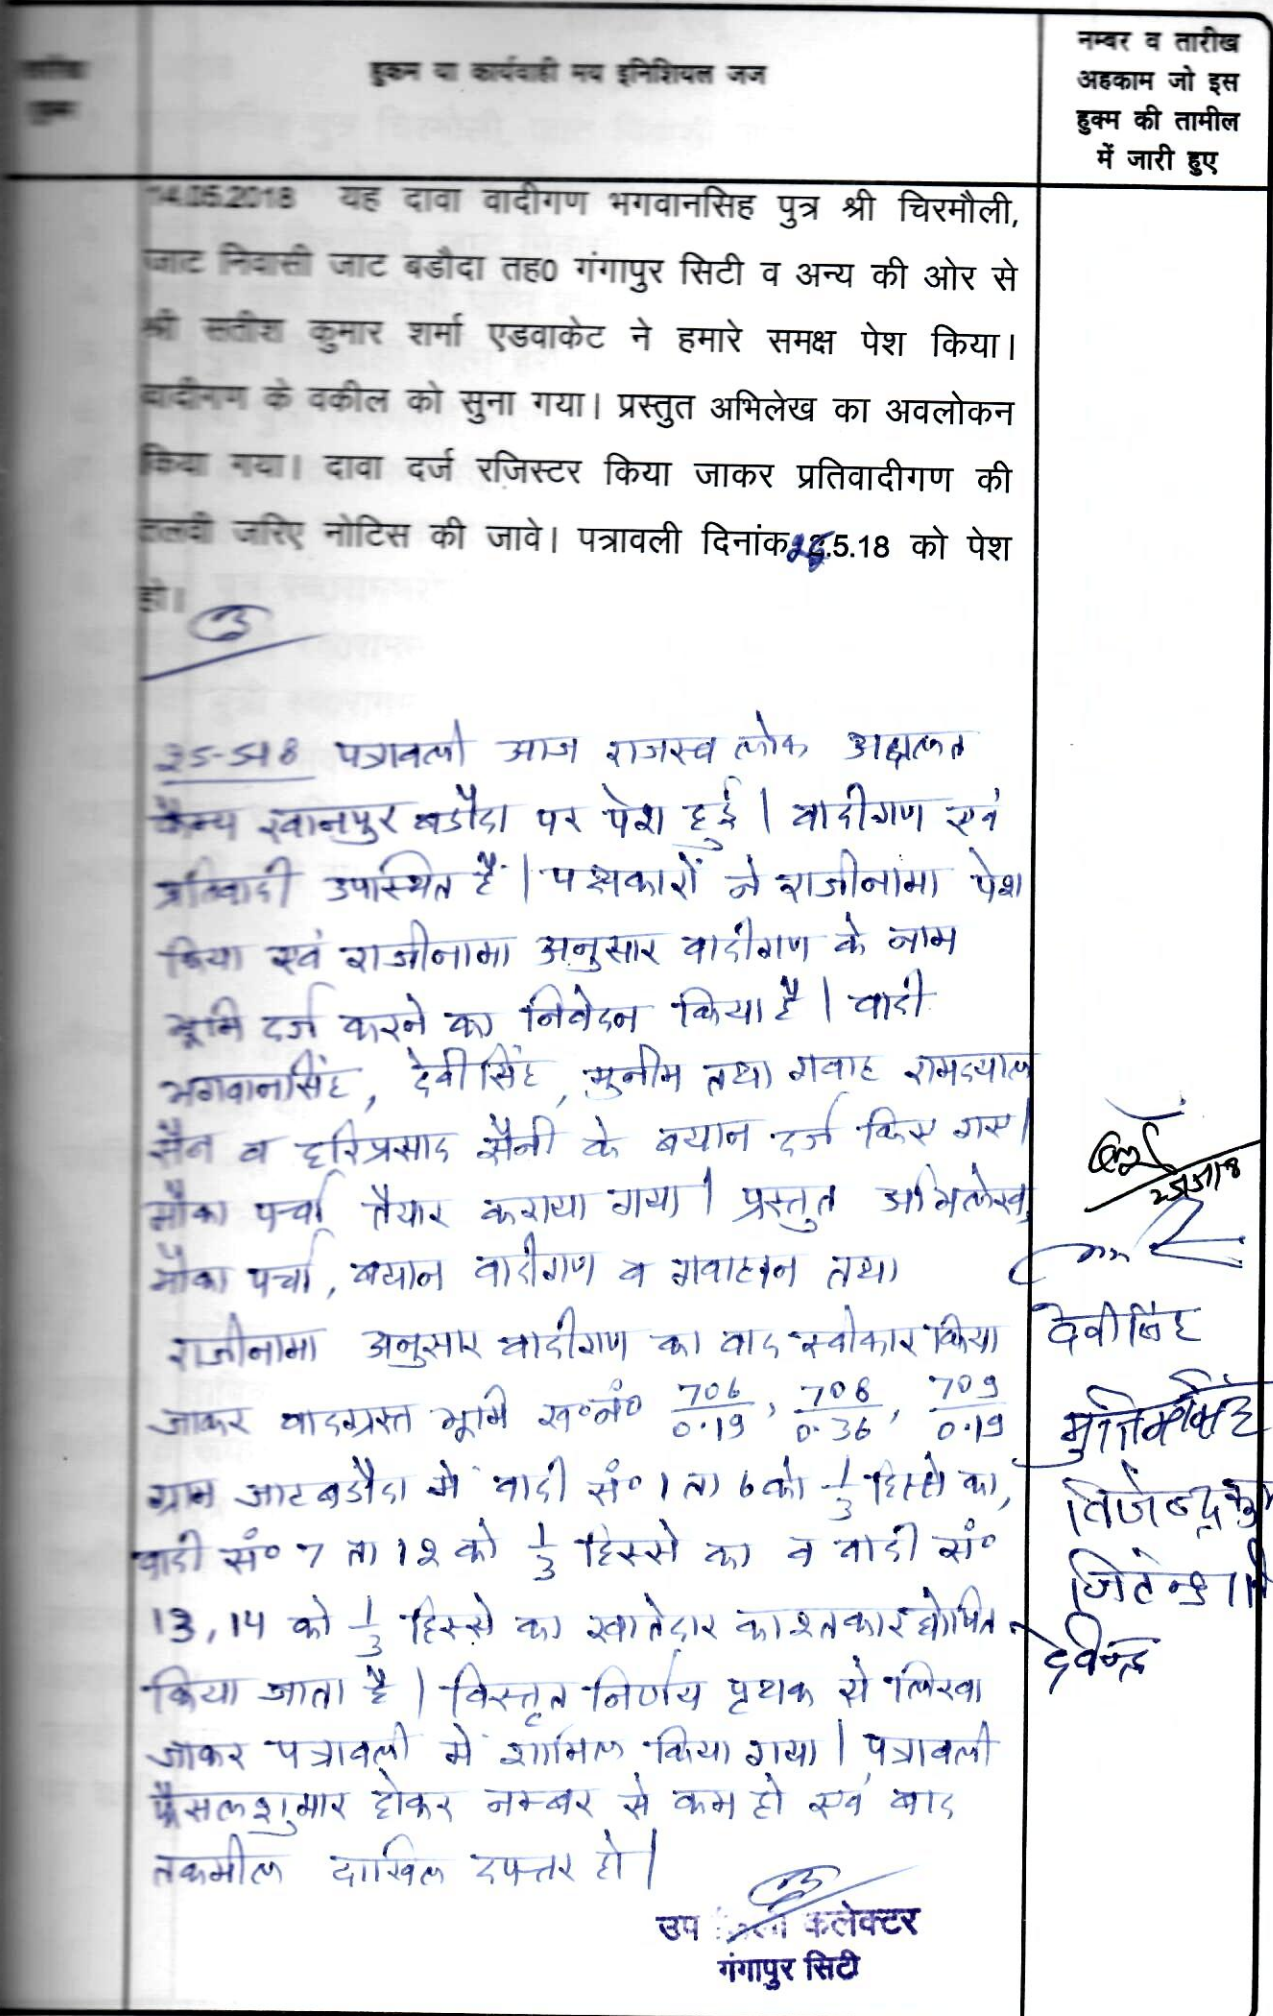 तारीख
हुक्म
हुकम या कार्यवाही मय इनिशियल जज
नम्बर व तारीख
अहकाम जो इस
हुक्म की तामील
में जारी हुए
14.05.2018 यह दावा वादीगण भगवानसिह पुत्र श्री चिरमौली,
जाट निवासी जाट बडौदा तह0 गंगापुर सिटी व अन्य की ओर से
श्री सतीश कुमार शर्मा एडवाकेट ने हमारे समक्ष पेश किया।
वादीगण के वकील को सुना गया। प्रस्तुत अभिलेख का अवलोकन
किया गया। दावा दर्ज रजिस्टर किया जाकर प्रतिवादीगण की
तलवी जरिए नोटिस की जावे। पत्रावली दिनांक .5.18 को पेश
हो।
25-5-18 पत्रावली आज राजस्व लोक अदालत
कैम्प खानपुर बडौदा पर पेश हुई। वादीगण एवं
प्रतिवादी उपस्थित हैं। पक्षकारों ने राजीनामा पेश
किया एवं राजीनामा अनुसार वादीगण के नाम
भूमि दर्ज करने का निवेदन किया है। वादी
भगवानसिंह, देवीसिंह, मुनीम तथा गवाह रामदयाल
सैन व हरिप्रसाद सैनी के बयान दर्ज किए गए।
मौका पर्चा तैयार कराया गया। प्रस्तुत अभिलेख,
मौका पर्चा, बयान वादीगण व गवाहान तथा
राजीनामा अनुसार वादीगण का वाद स्वीकार किया
जाकर वादग्रस्त भूमि ख०नं० 706/0.19, 708/0.36, 709/0.19
ग्राम जाटबडौदा में वादी सं० 1 ता 6 को 1/3 हिस्से का,
वादी सं० 7 ता 12 को 1/3 हिस्से का व वादी सं०
13, 14 को 1/3 हिस्से का खातेदार काश्तकार घोषित
किया जाता है। विस्तृत निर्णय पृथक से लिखा
जाकर पत्रावली में शामिल किया गया। पत्रावली
फैसलशुमार होकर नम्बर से कम हो एवं बाद
तकमील दाखिल दफ्तर हो।
25/5/18
देवीसिंह
देवेन्द्र
उप जिला कलेक्टर
गंगापुर सिटी